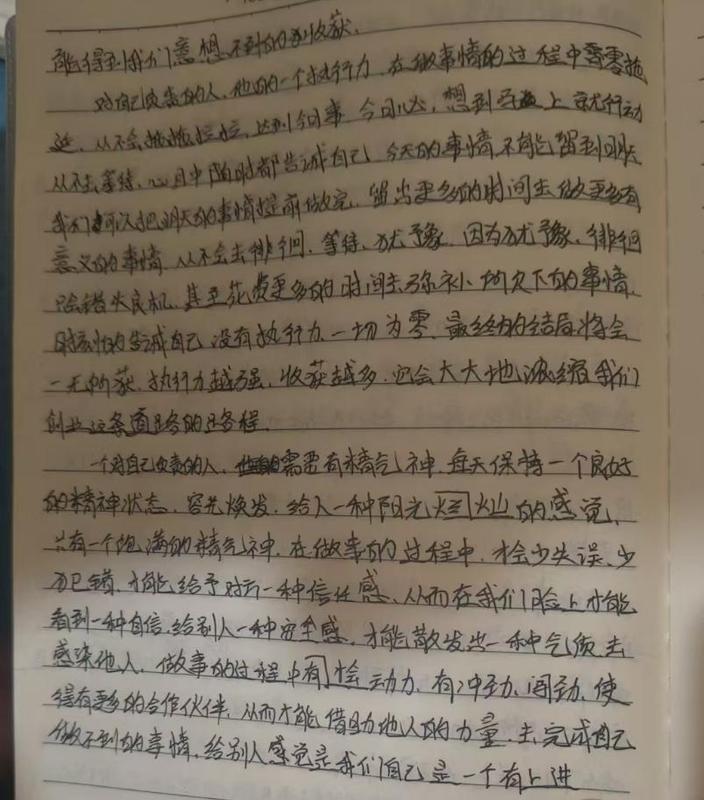 能得到我们意想不到的收获。
对自己负责的人,他的一个执行力,在做事情的过程中需零拖
延,从不会拖拖拉拉,达到今日事今日必,想到马上就行动
从不去等待,心目中随时都告诫自己,今天的事情不能留到明天
我们可以把明天的事情提前做完,留出更多的时间去做更多有
意义的事情,从不会去徘徊、等待、犹豫,因为犹豫、徘徊
只会错失良机,甚至花费更多的时间去弥补所欠下的事情,
时刻的告诫自己,没有执行力一切为零,最终的结局将会
一无所获,执行力越强,收获越多,也会大大地缩我们
创业这条道路的路程。
一个对自己负责的人,需要有精气神,每天保持一个良好
的精神状态,容光焕发,给人一种阳光灿烂的感觉,
只有一个饱满的精气神,在做事的过程中,才会少失误、少
犯错,才能给予对方一种信任感,从而在我们脸上才能
看到一种自信,给别人一种安全感,才能散发出一种气质去
感染他人,做事的过程中才会有动力,有冲劲、闯劲,使
得有更多的合作伙伴,从而才能借助他人的力量,去完成自己
做不到的事情,给别人感觉是我们自己是一个有上进